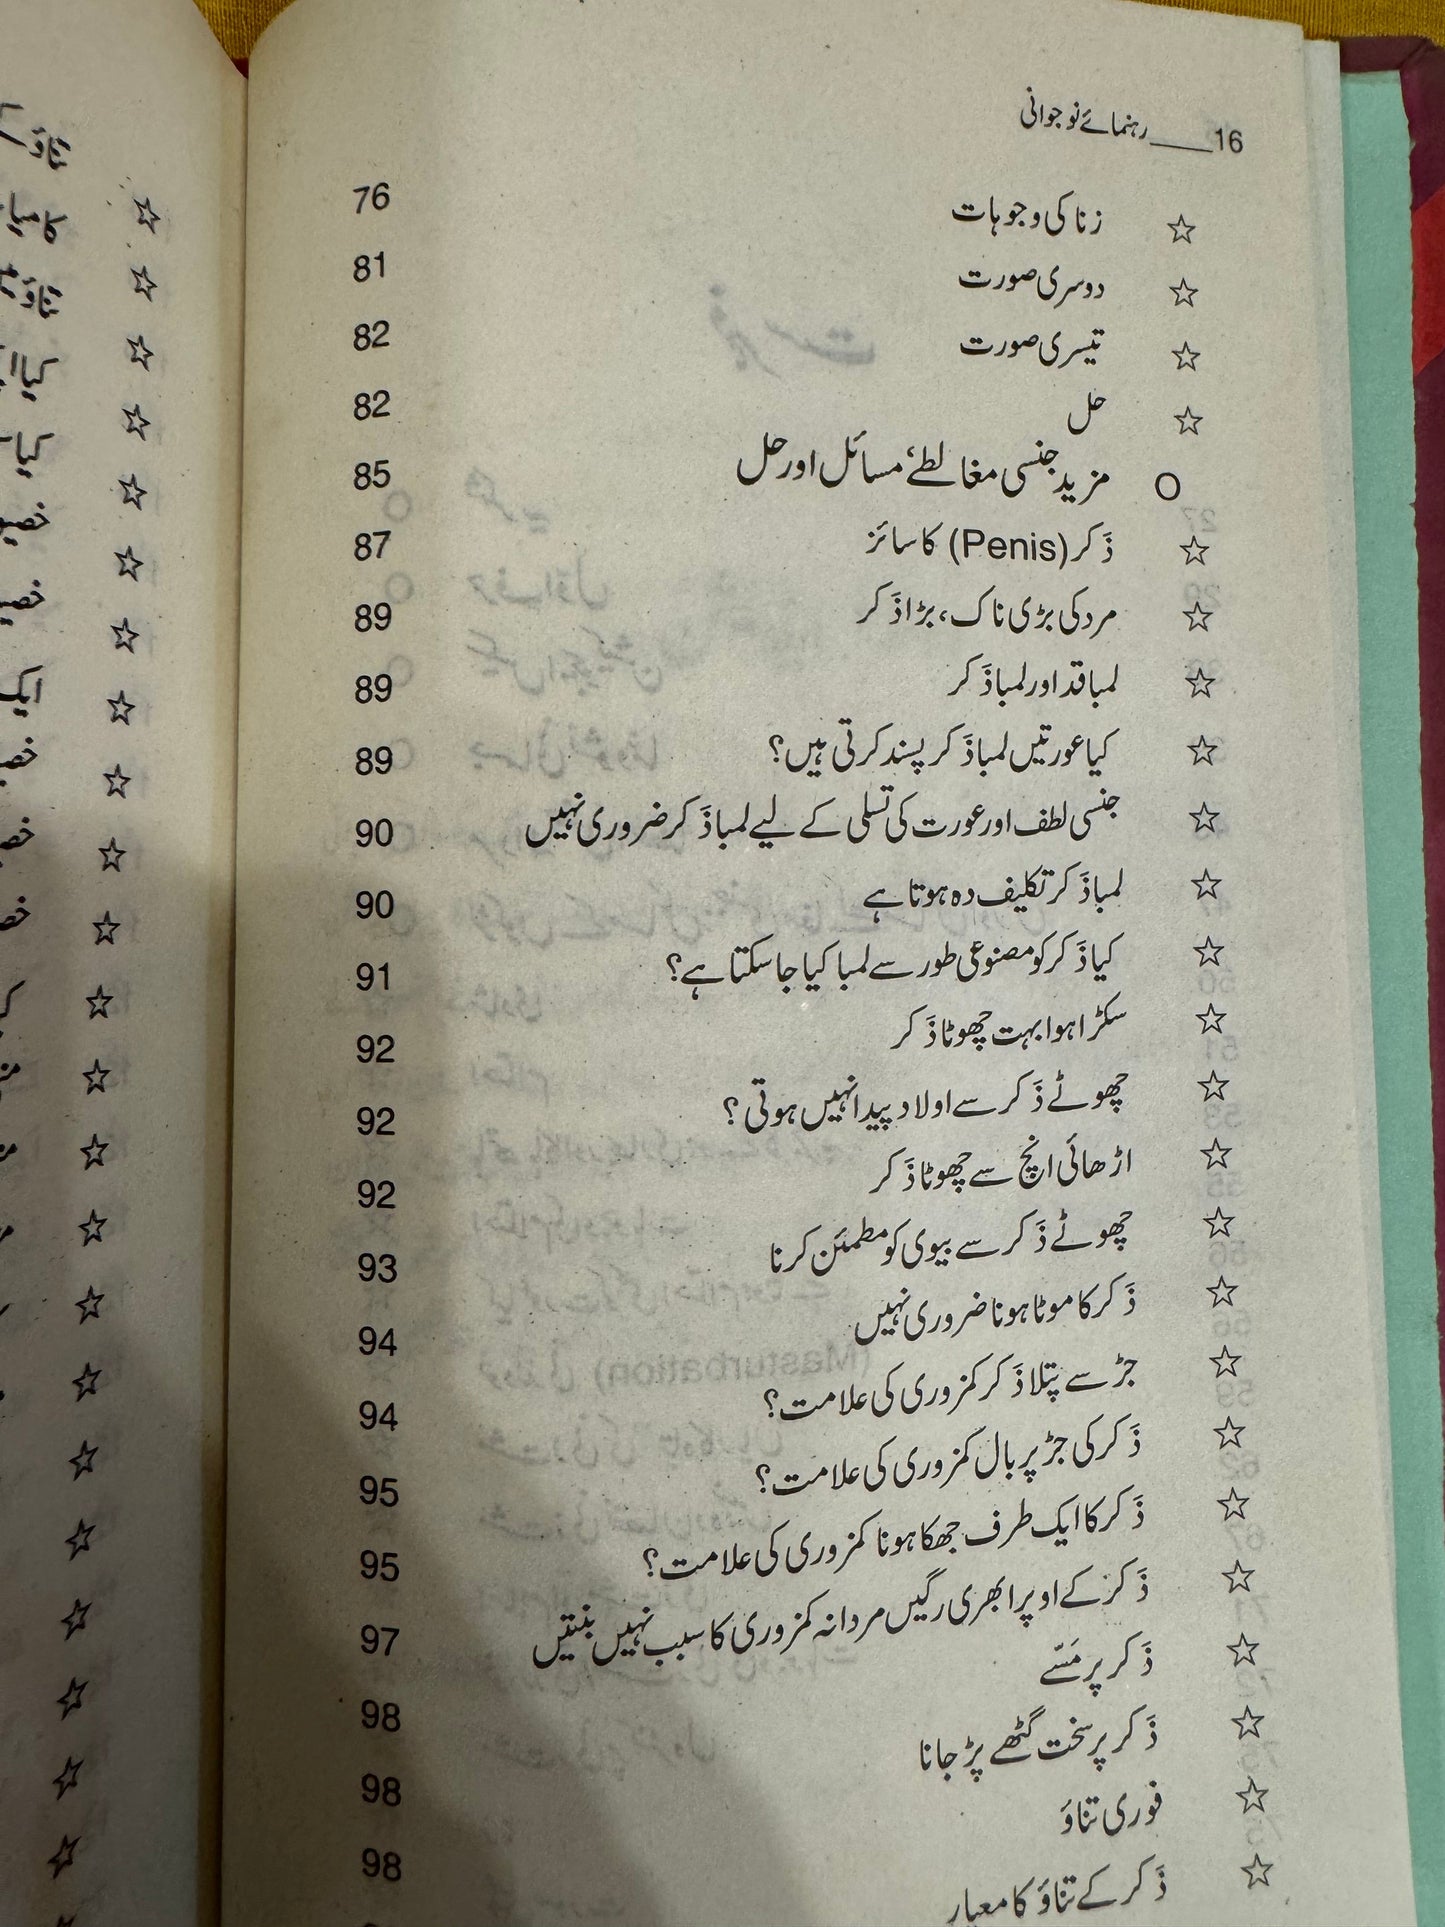 16____رہنمائے نوجوانی
☆ زنا کی وجوہات 76
☆ دوسری صورت 81
☆ تیسری صورت 82
☆ حل 82
○ مزید جنسی مغالطے، مسائل اور حل 85
☆ ذَکر (Penis) کا سائز 87
☆ مرد کی بڑی ناک، بڑا ذَکر 89
☆ لمبا قد اور لمبا ذَکر 89
☆ کیا عورتیں لمبا ذَکر پسند کرتی ہیں؟ 89
☆ جنسی لطف اور عورت کی تسلی کے لیے لمبا ذَکر ضروری نہیں 90
☆ لمبا ذَکر تکلیف دہ ہوتا ہے 90
☆ کیا ذَکر کو مصنوعی طور سے لمبا کیا جا سکتا ہے؟ 91
☆ سکڑا ہوا بہت چھوٹا ذَکر 92
☆ چھوٹے ذَکر سے اولاد پیدا نہیں ہوتی؟ 92
☆ اڑھائی انچ سے چھوٹا ذَکر 92
☆ چھوٹے ذَکر سے بیوی کو مطمئن کرنا 93
☆ ذَکر کا موٹا ہونا ضروری نہیں 94
☆ جڑ سے پتلا ذَکر کمزوری کی علامت؟ 94
☆ ذَکر کی جڑ پر بال کمزوری کی علامت؟ 95
☆ ذَکر کا ایک طرف جھکا ہونا کمزوری کی علامت؟ 95
☆ ذَکر کے اوپر ابھری رگیں مردانہ کمزوری کا سبب نہیں بنتیں 97
☆ ذَکر پر مَسّے 98
☆ ذَکر پر سخت گٹھے پڑ جانا 98
☆ فوری تناؤ 98
☆ ذَکر کے تناؤ کا معیار